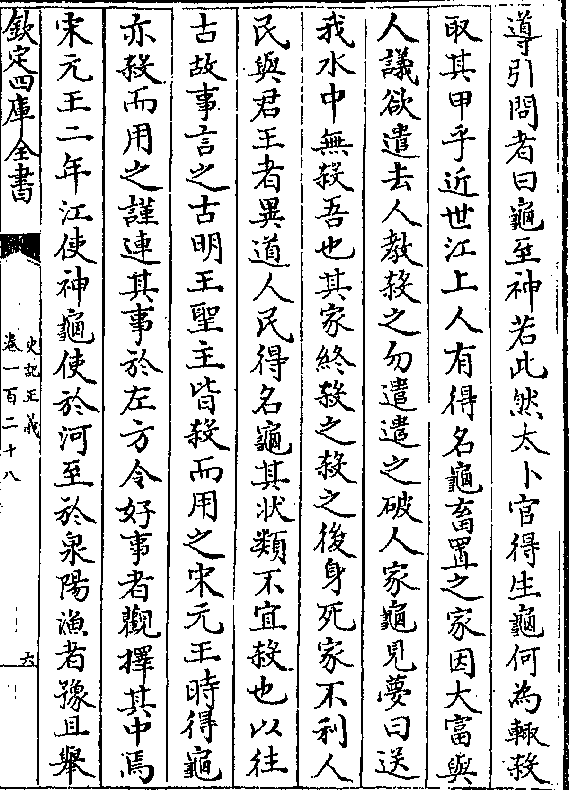 導引問者曰龜至神若此然太卜官得生龜何為輒殺
取其甲乎近世江上人有得名龜畜置之家因大富與
人議欲遣去人教殺之勿遣遣之破人家龜見夢曰送
我水中無殺吾也其家終殺之殺之後身死家不利人
民與君王者異道人民得名龜其狀類不宜殺也以往
古故事言之古明王聖主皆殺而用之宋元王時得龜
亦殺而用之謹連其事於左方令好事者觀擇其中焉
宋元王二年江使神龜使於河至於泉陽漁者豫且舉
欽定四庫全書
史記正義
卷一百二十八
六